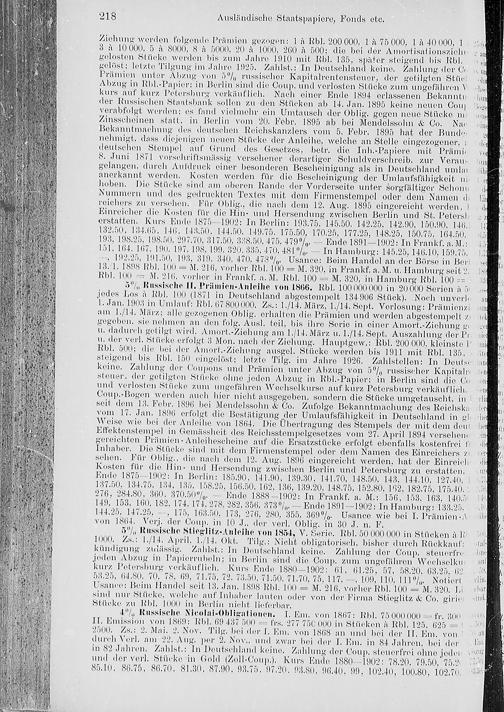 218 Ausländische Staatspapiere, Fonds etc.
Ziehung werden folgende Prämien gezogen: 1 à Rbl. 200 000, 1 à 75 000, 1 à 40 000, 1
3 à 10 000, 5 à 8000, 8 à 5000, 20 à 1000, 260 à 500; die bei der Amortisationszieh
gelosten Stücke werden bis zum Jahre 1910 mit Rbl. 135, später steigend bis Rbl.
gelöst; letzte Tilgung im Jahre 1925. Zahlst.: In Deutschland keine. Zahlung der C
Prämien unter Abzug von 5% russischer Kapitalrentensteuer, der getilgten Stüc
Abzug in Rbl.-Papier; in Berlin sind die Coup. und verlosten Stücke zum ungefähren
kurs auf kurz Petersburg verkäuflich. Nach einer Ende 1894 erlassenen Bekannt
der Russischen Staatsbank sollen zu den Stücken ab 14. Jan. 1895 keine neuen Cou
verabfolgt werden; es fand vielmehr ein Umtausch der Oblig. gegen neue Stücke m
Zinsscheinen statt, in Berlin vom 20. Febr. 1895 ab bei Mendelssohn & Co. Na
Bekanntmachung des deutschen Reichskanzlers vom 5. Febr. 1895 hat der Bunde
nehmigt, dass diejenigen neuen Stücke der Anleihe, welche an Stelle eingezogener,
deutschen Stempel auf Grund des Gesetzes, betr. die Inh.-Papiere mit Prämi
8. Juni 1871 vorschriftsmässig versehener derartiger Schuldverschreib. zur Veraus
gelangen, durch Aufdruck einer besonderen Bescheinigung als in Deutschland umla
anerkannt werden. Kosten werden für die Bescheinigung der Umlaufsfähigkeit n
hoben. Die Stücke sind am oberen Rande der Vorderseite unter sorgfältiger Schon
Nummern und des gedruckten Textes mit dem Firmenstempel oder dem Namen d
reichers zu versehen. Für Oblig., die nach dem 12. Aug. 1895 eingereicht werden,
Einreicher die Kosten für die Hin- und Hersendung zwischen Berlin und St. Petersb
erstatten. Kurs Ende 1875—1902: In Berlin: 193.75, 145.50, 142.25, 142.90, 150.90, 146.
132.50, 134.65, 146, 143.50, 144.50, 149.75, 175.50, 170.25, 177.25, 148.25, 150.75, 164.50,
193, 198.25, 198.50, 297.70, 317.50, 338.50, 475, 479% — Ende 1891—1902: In Frankf. a. M.:
151, 164, 167, 190, 197, 198, 199, 320, 335, 470, 481%. — In Hamburg: 145.25, 146.10, 159.75,
—, 192.25, 191.50, 193, 319, 340, 473%. Usance: Beim Handel an der Börse in Ber
13. 1. 1898 Rbl. 100 = M. 216, vorher Rbl. 100 = M. 320, in Frankf. a. M. u. Hamburg seit 2.
Rbl. 100 = M. 216, vorher in Frankf. a. M. Rbl. 100 = M. 320, in Hamburg Rbl. 100 =
5% Russische II. Prämien-Anleihe von 1866. Rbl. 100 000 000 in 20 000 Serien à 5
jedes Los à Rbl. 100 (1871 in Deutschland abgestempelt 134 906 Stück). Noch unverl
1. Jan. 1903 in Umlauf: Rbl. 67 800 000. Zs.: 1./14. März, 1./14. Sept. Verlosung: Prämienz
am 1./14. März; alle gezogenen Oblig. erhalten die Prämien und werden abgestempelt z
gegeben, sie nehmen an den folg. Ausl. teil, bis ihre Serie in einer Amort.-Ziehung g
u. dadurch getilgt wird. Amort.-Ziehung am 1./14. März u. 1./14. Sept. Auszahlung der P
u. der verl. Stücke erfolgt 3 Mon. nach der Ziehung. Hauptgew.: Rbl. 200 000, kleinste
Rbl. 500; die bei der Amort.-Ziehung ausgel. Stücke werden bis 1911 mit Rbl. 135,
steigend bis Rbl. 150 eingelöst; letzte Tilg. im Jahre 1926. Zahlstellen: In Deuts
keine. Zahlung der Coupons und Prämien unter Abzug von 5% russischer Kapital
steuer, der getilgten Stücke ohne jeden Abzug in Rbl.-Papier; in Berlin sind die Co
und verlosten Stücke zum ungefähren Wechselkurse auf kurz Petersburg verkäuflich.
Coup.-Bogen werden auch hier nicht ausgegeben, sondern die Stücke umgetauscht, in
seit dem 13. Febr. 1896 bei Mendelssohn & Co. Zufolge Bekanntmachung des Reichska
vom 17. Jan. 1896 erfolgt die Bestätigung der Umlaufsfähigkeit in Deutschland in gl
Weise wie bei der Anleihe von 1864. Die Übertragung des Stempels der mit dem deu
Effektenstempel in Gemässheit des Reichsstempelgesetzes vom 27. April 1894 versehen
gereichten Prämien-Anleihescheine auf die Ersatzstücke erfolgt ebenfalls kostenfrei f
Inhaber. Die Stücke sind mit dem Firmenstempel oder dem Namen des Einreichers z
sehen. Für Oblig., die nach dem 12. Aug. 1896 eingereicht werden, hat der Einreich
Kosten für die Hin- und Hersendung zwischen Berlin und Petersburg zu erstatten.
Ende 1875—1902: In Berlin: 185.90, 141.90, 139.30, 141.70, 148.50, 143, 144.10, 127.40,
137.50, 134.75, 134, 135, 158.25, 156.50, 162, 136, 139.20, 148.75, 152.80, 162, 182.75, 175.40,
276, 284.80, 360, 370.50%. — Ende 1888—1902: In Frankf. a. M.: 156, 153, 163, 140.5
149, 153, 160, 182, 174, 171, 278, 282, 356, 373%. — Ende 1891—1902: In Hamburg: 133.25,
144.25, 147.25, —, 175, 163.50, 173, 276, 280, 355, 369%. Usance wie bei I. Prämien-A
von 1864. Verj. der Coup. in 10 J., der verl. Oblig. in 30 J. n. F.
5% Russische Stieglitz-Anleihe von 1854, V. Serie. Rbl. 50 000 000 in Stücken à R
1000. Zs.: 1./14. April, 1./14. Okt. Tilg.: Nicht obligatorisch, bisher durch Rückkauf:
kündigung zulässig. Zahlst.: In Deutschland keine. Zahlung der Coup. steuerfre
jeden Abzug in Papierrubeln; in Berlin sind die Coup. zum ungefähren Wechselku
kurz Petersburg verkäuflich. Kurs Ende 1880—1902: 61, 61.25, 57, 58.20, 63.25, 62
53.25, 64.80, 70, 78, 69, 71.75, 72, 73.50, 71.50, 71.70, 75, 117, —, 109, 110, 111%. Notiert
Usance: Beim Handel seit 13. Jan. 1898 Rbl. 100 = M. 216, vorher Rbl. 100 = M. 320. Li
sind nur Stücke, welche auf Inhaber lauten oder von der Firma Stieglitz & Co. girie
Stücke zu Rbl. 1000 in Berlin nicht lieferbar.
4% Russische Nicolai-Obligationen. I. Em. von 1867: Rbl. 75 000 000 = fr. 300
II. Emission von 1869: Rbl. 69 437 500 = frs. 277 750 000 in Stücken à Rbl. 125, 625 =
2500. Zs.: 2. Mai, 2. Nov. Tilg. bei der I. Em. von 1868 an und bei der II. Em. von
durch Verl. am 22. Aug. per 2. Nov., und zwar bei der I. Em. in 84 Jahren, bei der
in 82 Jahren. Zahlst.: In Deutschland keine. Zahlung der Coup. steuerfrei ohne jeden
und der verl. Stücke in Gold (Zoll-Coup.). Kurs Ende 1880—1902: 78.20, 79.50, 75.2
85.10, 86.75, 86.70, 81.30, 87.90, 93.75, 97.20, 93.80, 96.40, 99, 102.40, 100.80, 102.70,